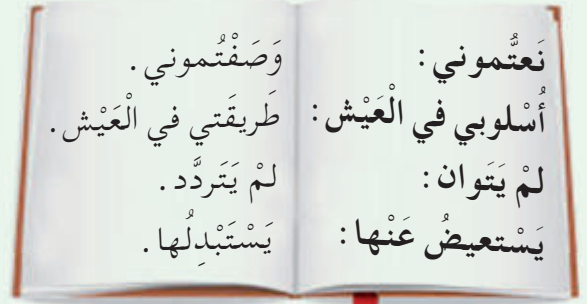 نَعتُّموني : وَصَفْتُموني .
أُسْلوبي في الْعَيْش : طَريقَتي في الْعَيْش .
لمْ يَتَوان : لمْ يَتَردَّد .
يَسْتَعيضُ عَنْها : يَسْتَبْدِلُها .